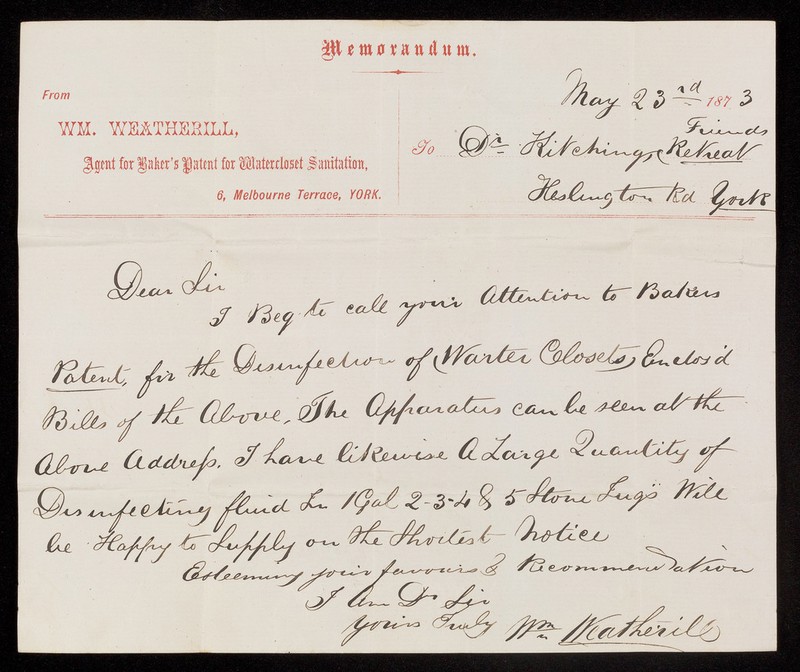 Memorandum.
From
WM. WEATHERILL,
Agent for Baker's Patent for Watercloset Sanitation,
6, Melbourne Terrace, YORK.
May 23rd 1873
To Dr Kitching, Friends Retreat
Heslington Rd York
Dear Sir
I Beg to call your Attention to Bakers
Patent, for the Disinfection of (Warter Closets) Enclos'd
Bills of the Above, The Apparatus can be seen at the
Above Address. I have likewise A Large Quantity of
Disinfecting fluid In 1 Gal 2-3-4 & 5 Stone Jug's Will
be Happy to Supply on the Shortest Notice
Esteeming your favours & Recommendation
I Am Dr Sir
Yours Truly Wm Weatherill